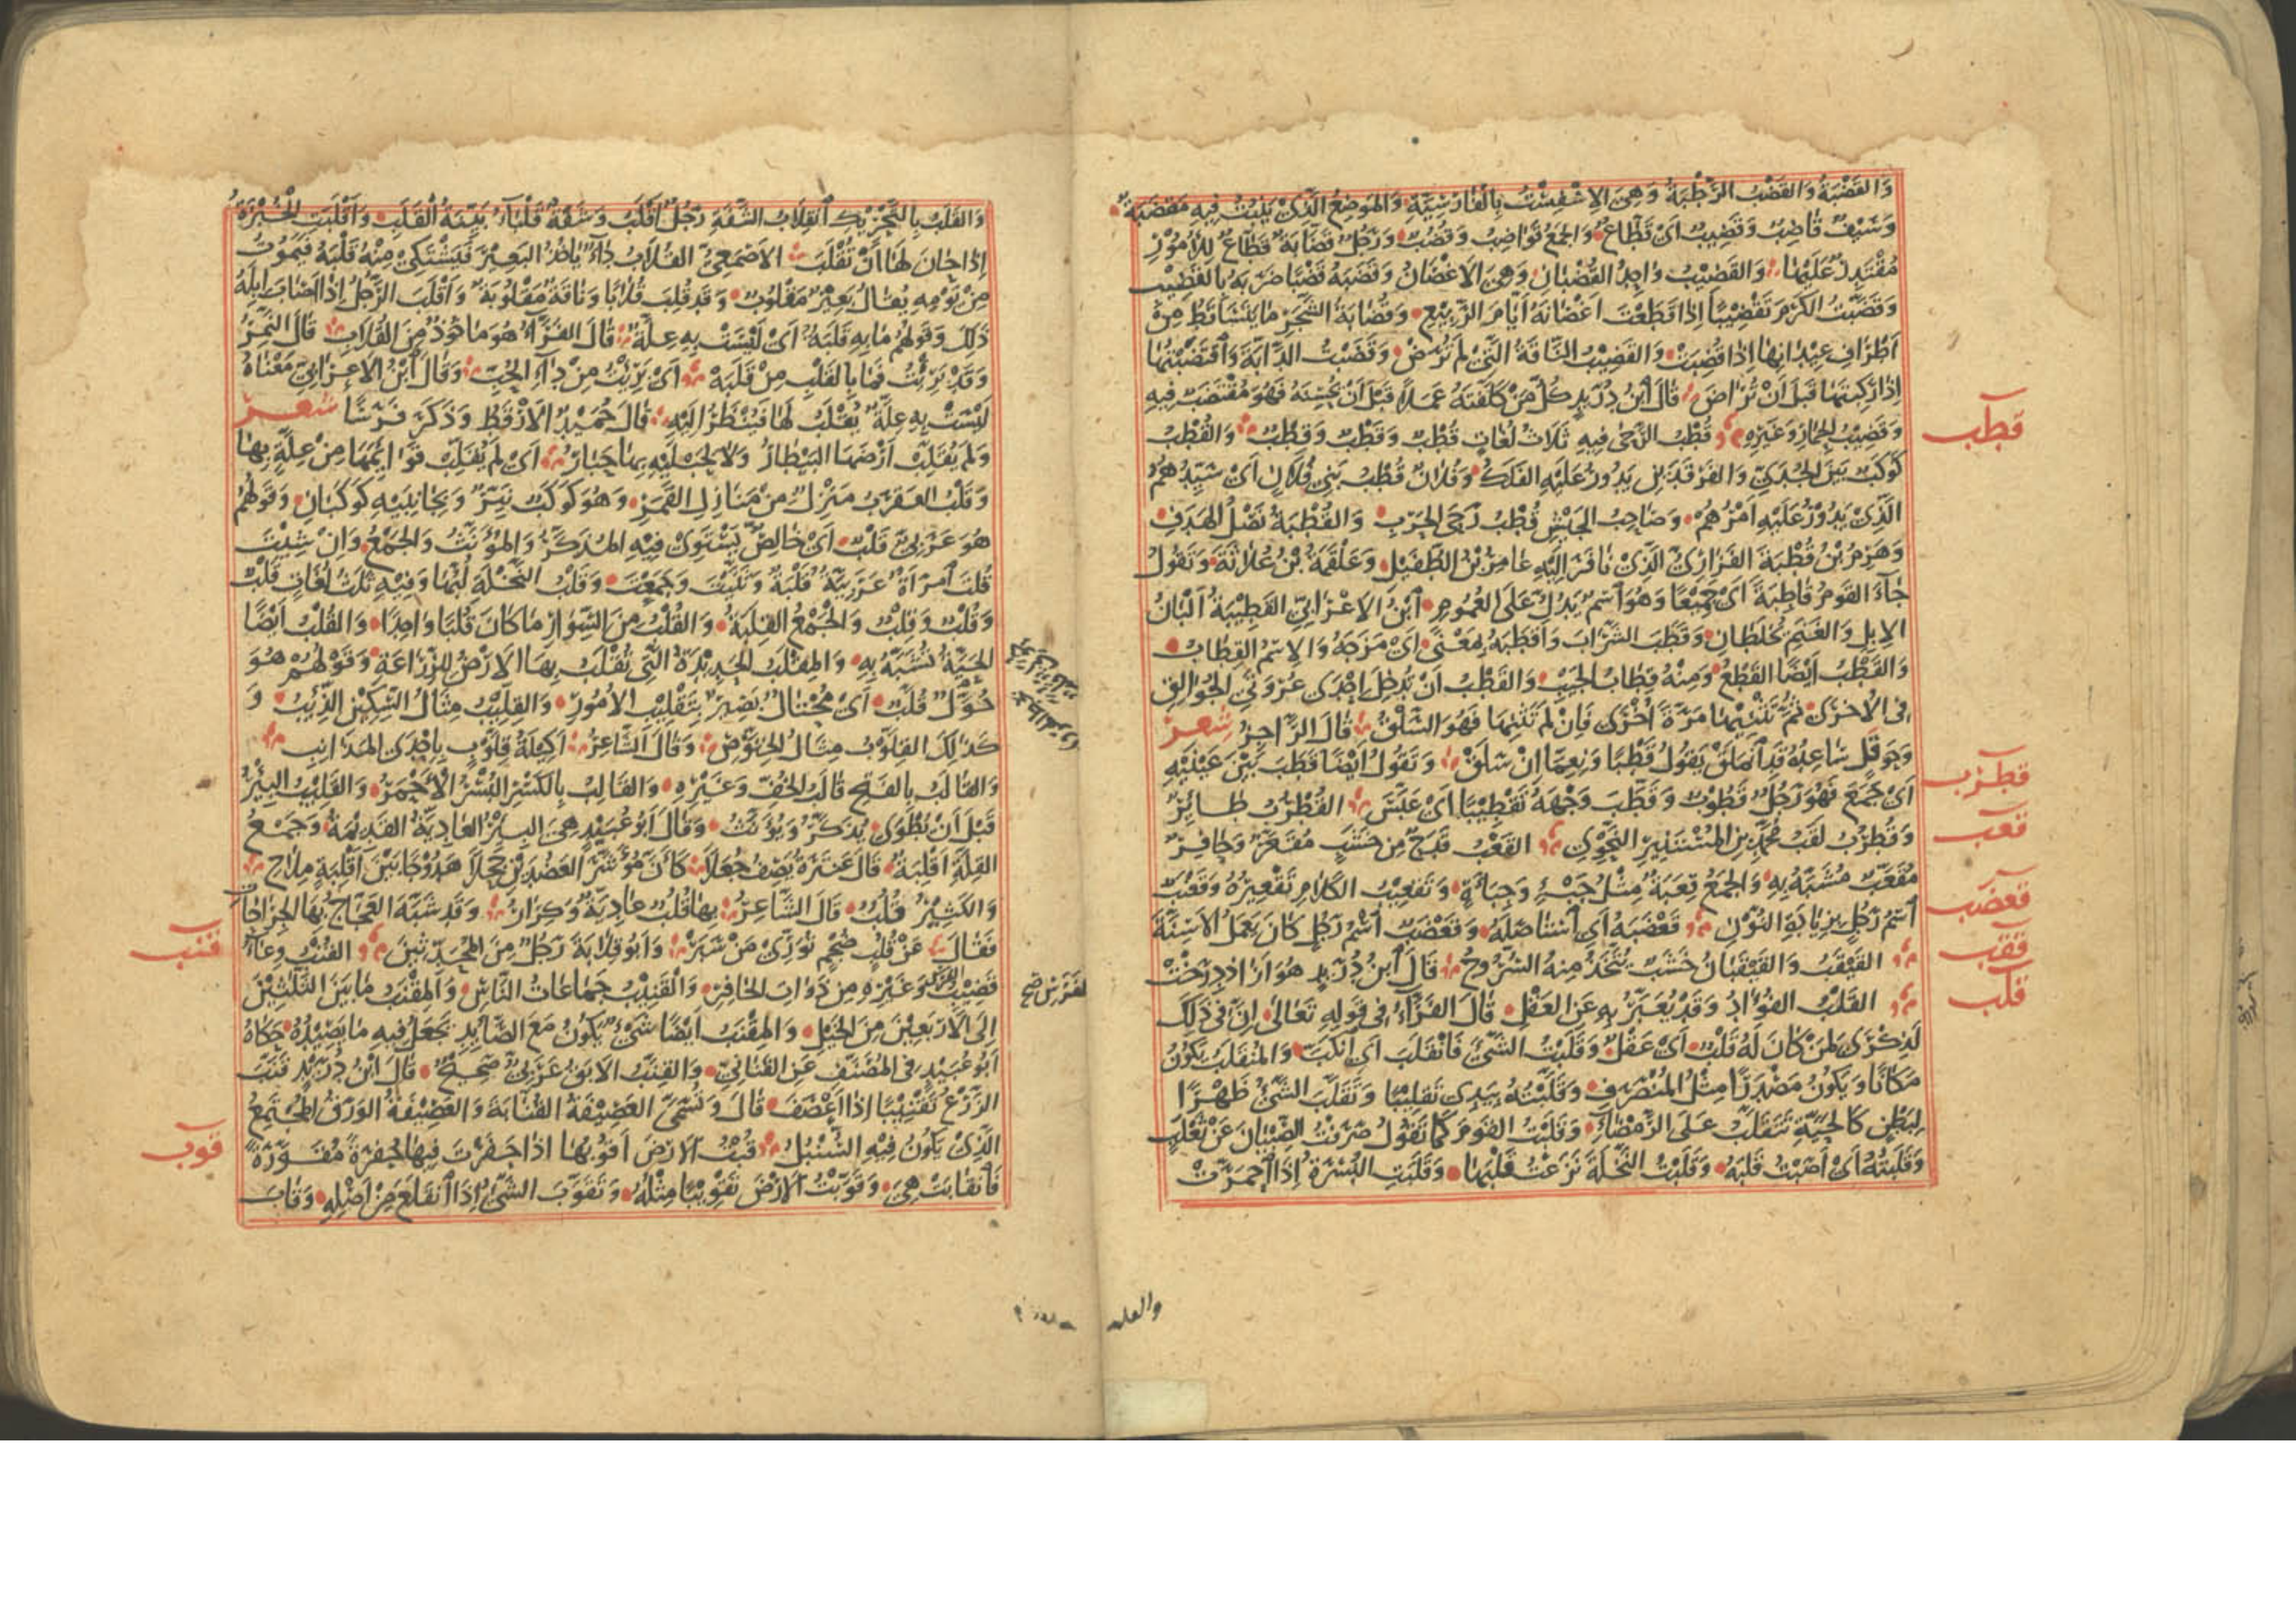 وَالقَضْبَةُ وَالقَضْبُ الرَّطْبَةُ وَهِيَ الاِسْفِسْتُ بِالْفَارِسِيَّةِ وَالمَوْضِعُ الَّذِي يَنْبُتُ فِيهِ مَقْضَبَةٌ
وَسَيْفٌ قَاضِبٌ وَقَضِيبٌ اَىْ قَطَّاعٌ وَالجَمْعُ قَوَاضِبُ وَقُضُبٌ وَرَجُلٌ قَضَّابَةٌ قَطَّاعٌ لِلْاُمُورِ
مُقْتَدِرٌ عَلَيْهَا وَالقَضِيْبُ وَاحِدُ القُضْبَانِ وَهِيَ الاَغْصَانُ وَقَضَبَهُ قَضْبًا ضَرَبَهُ بِالقَضِيْبِ
وَقَضَّبْتُ الكَرْمَ تَقْضِيْبًا اِذَا قَطَعْتَ اَغْصَانَهُ اَيَّامَ الرَّبِيْعِ وَقُضَابَةُ الشَّجَرِ مَا يَتَسَاقَطُ مِنْ
اَطْرَافِ عِيْدَانِهَا اِذَا قُضِبَتْ وَالقَضِيْبُ النَّاقَةُ الَّتِيْ لَمْ تُرَضْ وَقَضَبْتُ الدَّابَّةَ وَاقْتَضَبْتُهَا
اِذَا رَكِبْتَهَا قَبْلَ اَنْ تُرَاضَ قَالَ ابْنُ دُرَيْدٍ كُلُّ مَنْ كَلَّفْتَهُ عَمَلًا قَبْلَ اَنْ يُحْسِنَهُ فَهُوَ مُقْتَضَبٌ فِيهِ
وَقَضِيْبُ الحِمَارِ وَغَيْرِهِ قُطْبُ الرَّحَى فِيهِ ثَلَاثُ لُغَاتٍ قُطْبٌ وَقَطْبٌ وَقِطْبٌ وَالقُطْبُ
قطب
كَوْكَبٌ بَيْنَ الجَدْيِ وَالفَرْقَدَيْنِ يَدُورُ عَلَيْهِ الفَلَكُ وَفُلَانٌ قُطْبُ بَنِي فُلَانٍ اَىْ سَيِّدُهُمْ
الَّذِيْ يَدُوْرُ عَلَيْهِ اَمْرُهُمْ وَصَاحِبُ الجَيْشِ قُطْبُ رَحَى الحَرْبِ وَالقُطْبَةُ نَصْلُ الهَدَفِ
وَهَرِمُ بْنُ قُطْبَةَ الفَزَارِيُّ الَّذِيْ نَافَرَ اِلَيْهِ عَامِرُ بْنُ الطُّفَيْلِ وَعَلْقَمَةُ بْنُ عُلَاثَةَ وَتَقُولُ
جَآءَ القَوْمُ قَاطِبَةً اَىْ جَمِيْعًا وَهُوَ اسْمٌ يَدُلُّ عَلَى العُمُومِ ابْنُ الاَعْرَابِيِّ القَطِيْبَةُ اَلْبَانُ
الاِبِلِ وَالغَنَمِ يُخْلَطَانِ وَقَطَبَ الشَّرَابَ وَاَقْطَبَهُ بِمَعْنًى اَىْ مَزَجَهُ وَالاِسْمُ القِطَابُ
وَالقَطْبُ اَيْضًا القَطْعُ وَمِنْهُ قِطَابُ الجَيْبِ وَالقَطْبُ اَنْ تُدْخِلَ اِحْدَى عُرْوَتَيِ الجُوَالِقِ
فِى الاُخْرَى ثُمَّ تَثْنِيْهَا مَرَّةً اُخْرَى فَاِنْ لَمْ تَثْنِهَا فَهُوَ السَّلْقُ قَالَ الرَّاجِزُ شعر
وَحَوْقَلٍ سَاعِدُهُ قَدِ انْمَلَقْ يَقُولُ قَطْبًا وَنِعِمَّا اِنْ سَلَقْ وَتَقُولُ اَيْضًا قَطَبَ بَيْنَ عَيْنَيْهِ
اَىْ جَمَعَ فَهُوَ رَجُلٌ قَطُوْبٌ وَقَطَّبَ وَجْهَهُ تَقْطِيْبًا اَىْ عَبَسَ القُطْرُبُ طَائِرٌ
قطرب
وَقُطْرُبٌ لَقَبُ مُحَمَّدِ بْنِ المُسْتَنِيْرِ النَّحْوِيِّ القَعْبُ قَدَحٌ مِنْ خَشَبٍ مُقَعَّرٌ وَحَافِرٌ
قعب
مُقَعَّبٌ مُشَبَّهٌ بِهِ وَالجَمْعُ قِعَبَةٌ مِثْلُ جَبْءٍ وَجِبَأَةٍ وَتَقْعِيْبُ الكَلَامِ تَقْعِيْرُهُ وَقَعْنَبٌ
اسْمُ رَجُلٍ بِزِيَادَةِ النُّوْنِ قَعْضَبَهُ اَىِ اسْتَاصَلَهُ وَقَعْضَبٌ اسْمُ رَجُلٍ كَانَ يَعْمَلُ الاَسِنَّةَ
قعضب
القَيْقَبُ وَالقَيْقَبَانُ خَشَبٌ تُتَّخَذُ مِنْهُ السُّرُوجُ قَالَ ابْنُ دُرَيْدٍ هُوَ ازَاذْدِرَخْتْ
ققب
القَلْبُ الفُؤَادُ وَقَدْ يُعَبَّرُ بِهِ عَنِ العَقْلِ قَالَ الفَرَّاءُ فِى قَوْلِهِ تَعَالَى اِنَّ فِى ذَلِكَ
قلب
لَذِكْرَى لِمَنْ كَانَ لَهُ قَلْبٌ اَىْ عَقْلٌ وَقَلَبْتُ الشَّيْءَ فَانْقَلَبَ اَىِ انْكَبَّ وَالمُنْقَلَبُ يَكُوْنُ
مَكَانًا وَيَكُونُ مَصْدَرًا مِثْلُ المُنْصَرَفِ وَقَلَّبْتُهُ بِيَدِى تَقْلِيْبًا وَتَقَلَّبَ الشَّيْءُ ظَهْرًا
لِبَطْنٍ كَالحَيَّةِ تَتَقَلَّبُ عَلَى الرَّمْضَاءِ وَقَلَبْتُ القَوْمَ كَمَا تَقُولُ صَرَفْتُ الصِّبْيَانَ عَنْ ثَعْلَبٍ
وَقَلَبْتُهُ اَىْ اَصَبْتُ قَلْبَهُ وَقَلَبْتُ النَّخْلَةَ نَزَعْتُ قُلْبَهَا وَقَلَبَتِ البُسْرَةُ اِذَا احْمَرَّتْ
والقلب
وَالقَلَبُ بِالتَّحْرِيْكِ انْقِلَابُ الشَّفَةِ رَجُلٌ اَقْلَبُ وَشَفَةٌ قَلْبَآءُ بَيِّنَةُ القَلَبِ وَاَقْلَبَتِ الخُبْزَةُ
اِذَا حَانَ لَهَا اَنْ تُقْلَبَ الاَصْمَعِيُّ القُلَابُ دَآءٌ يَاخُذُ البَعِيْرَ فَيَشْتَكِي مِنْهُ قَلْبَهُ فَيَمُوتُ
مِنْ يَوْمِهِ يُقَالُ بَعِيْرٌ مَقْلُوبٌ وَقَدْ قُلِبَ قُلَابًا وَنَاقَةٌ مَقْلُوبَةٌ وَاَقْلَبَ الرَّجُلُ اِذَا اَصَابَ اِبِلَهُ
ذَلِكَ وَقَوْلُهُمْ مَا بِهِ قَلَبَةٌ اَىْ لَيْسَتْ بِهِ عِلَّةٌ قَالَ الفَرَّآءُ هُوَ مَاخُوذٌ مِنَ القُلَابِ قَالَ النَّمِرُ
وَقَدْ بَرِئْتُ فَمَا بِالقَلْبِ مِنْ قَلَبَهْ اَىْ بَرِئْتُ مِنْ دَآءِ الحُبِّ وَقَالَ ابْنُ الاَعْرَابِيِّ مَعْنَاهُ
لَيْسَتْ بِهِ عِلَّةٌ يُقْلَبُ لَهَا فَيُنْظَرُ اِلَيْهِ قَالَ حُمَيْدٌ الاَرْقَطُ وَذَكَرَ فَرَسًا شعر
وَلَمْ يُقَلِّبْ اَرْضَهَا البَيْطَارُ وَلَا لِحَبْلَيْهِ بِهَا حَبَارُ اَىْ لَمْ يُقَلِّبْ قَوَائِمَهَا مِنْ عِلَّةٍ بِهَا
وَقَلْبُ العَقْرَبِ مَنْزِلٌ مِنْ مَنَازِلِ القَمَرِ وَهُوَ كَوْكَبٌ نَيِّرٌ وَبِجَانِبَيْهِ كَوْكَبَانِ وَقَوْلُهُمْ
هُوَ عَرَبِيٌّ قَلْبٌ اَىْ خَالِصٌ يَسْتَوِى فِيْهِ المُذَكَّرُ وَالمُؤَنَّثُ وَالجَمْعُ وَاِنْ شِئْتَ
قُلْتَ امْرَاَةٌ عَرَبِيَّةٌ قَلْبَةٌ وَثَنَّيْتَ وَجَمَعْتَ وَقَلْبُ النَّخْلَةِ لُبُّهَا وَفِيْهِ ثَلَثُ لُغَاتٍ قَلْبٌ
وَقُلْبٌ وَقِلْبٌ وَالجَمْعُ القِلَبَةُ وَالقُلْبُ مِنَ السِّوَارِ مَا كَانَ قُلْبًا وَاحِدًا وَالقُلْبُ اَيْضًا
الحَيَّةُ تُشَبَّهُ بِهِ وَالمِقْلَبُ الحَدِيْدَةُ الَّتِي تُقْلَبُ بِهَا الاَرْضُ لِلزِّرَاعَةِ وَقَوْلُهُمْ هُوَ
حُوَّلٌ قُلَّبٌ اَىْ مُحْتَالٌ بَصِيْرٌ بِتَقْلِيْبِ الاُمُوْرِ وَالقِلِّيْبُ مِثَالُ السِّكِّيْنِ الذِّئْبُ وَ
كَذَلِكَ القِلَّوْبُ مِثَالُ الخِنَّوْصِ وَقَالَ الشَّاعِرُ اَكِيْلَةُ قِلَّوْبٍ بِاِحْدَى المَذَانِبِ
وَالقَالَبُ بِالفَتْحِ قَالَبُ الخُفِّ وَغَيْرِهِ وَالقَالِبُ بِالكَسْرِ البُسْرُ الاَحْمَرُ وَالقَلِيْبُ البِئْرُ
قَبْلَ اَنْ تُطْوَى يُذَكَّرُ وَيُؤَنَّثُ وَقَالَ اَبُو عُبَيْدٍ هِيَ البِئْرُ العَادِيَّةُ القَدِيْمَةُ وَجَمْعُ
القِلَّةِ اَقْلِبَةٌ قَالَ عَنْتَرَةُ يَصِفُ جُعَلًا كَاَنَّ مُؤَشَّرَ العَضُدَيْنِ جَحْلًا هَدُوْجًا بَيْنَ اَقْلِبَةٍ مِلَاحِ
وَالكَثِيْرُ قُلُبٌ قَالَ الشَّاعِرُ بِهَا قُلُبٌ عَادِيَّةٌ وَكِرَارُ وَقَدْ شَبَّهَ العَجَّاجُ بِهَا الجِرَاحَاتِ
فَقَالَ عَنْ قُلُبٍ ضُجْمٍ تُوَرِّى مَنْ سَبَرْ وَاَبُو قِلَابَةَ رَجُلٌ مِنَ المُحَدِّثِيْنَ القُنْبُ وِعَاءُ
قنب
قَضِيْبِ الفرس وَغَيْرِهِ مِنْ ذَوَاتِ الحَافِرِ وَالقَنِيْبُ جَمَاعَاتُ النَّاسِ وَالمِقْنَبُ مَا بَيْنَ الثَّلٰثِيْنَ
اِلَى الاَرْبَعِيْنَ مِنَ الخَيْلِ وَالمِقْنَبُ اَيْضًا شَيْءٌ يَكُونُ مَعَ الصَّايِدِ يَجْعَلُ فِيهِ مَا يَصِيْدُهُ حَكَاهُ
اَبُو عُبَيْدٍ فِى المُصَنَّفِ عَنِ القَنَانِيِّ وَالقِنَّبُ الاَبَقُ عَرَبِيٌّ صَحِيْحٌ قَالَ ابْنُ دُرَيْدٍ قَنَّبَ
الزَّرْعُ تَقْنِيْبًا اِذَا اَعْصَفَ قَالَ وَتُسَمَّى العَصِيْفَةُ القُنَّابَةَ وَالعَصِيْفَةُ الوَرَقُ المُجْتَمِعُ
الَّذِىْ يَكُونُ فِيْهِ السُّنْبُلُ قُبْتُ الاَرْضَ اَقُوْبُهَا اِذَا حَفَرْتَ فِيْهَا حُفْرَةً مُقَوَّرَةً
قوب
فَانْقَابَتْ هِيَ وَقَوَّبْتُ الاَرْضَ تَقْوِيْبًا مِثْلُهُ وَتَقَوَّبَ الشَّيْءُ اِذَا انْقَلَعَ مِنْ اَصْلِهِ وَقَابَ